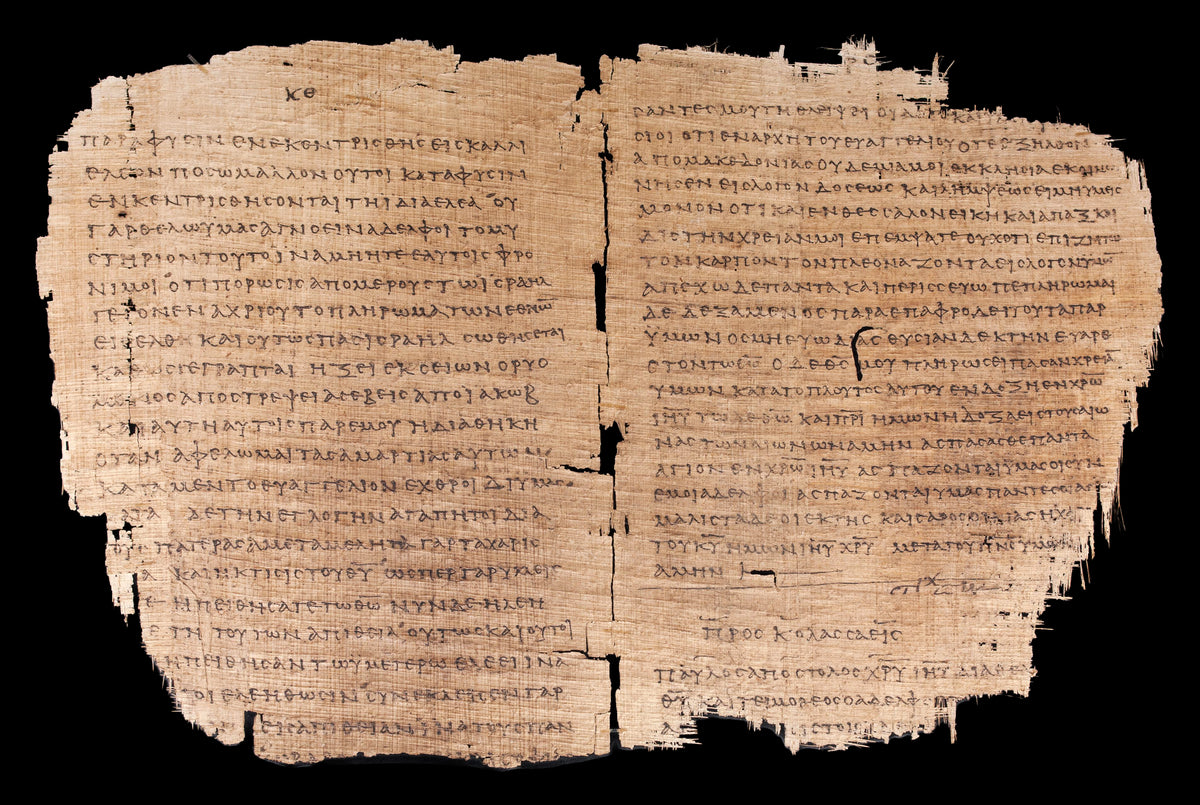 ΚΘ
ΠΑΡΑΦΥϹΙΝ ΕΝΕΚΕΝΤΡΙϹΘΗϹ ΕΙϹΚΑΛΛΙ
ΕΛΕΟΝ ΠΟϹΩΜΑΛΛΟΝ ΟΥΤΟΙ ΚΑΤΑΦΥϹΙΝ
ΕΝΚΕΝΤΡΙϹΘΗϹΟΝΤΑΙ ΤΗΙΔΙΑΕΛΕΑ ΟΥ
ΓΑΡΘΕΛΩΥΜΑϹΑΓΝΟΕΙΝΑΔΕΛΦΟΙ ΤΟΜΥ
ϹΤΗΡΙΟΝΤΟΥΤΟΙΝΑΜΗΗΤΕΕΑΥΤΟΙϹΦΡΟ
ΝΙΜΟΙ ΟΤΙΠΩΡΩϹΙϹΑΠΟΜΕΡΟΥϹΤΩΙϹΡΑΗΛ
ΓΕΓΟΝΕΝΑΧΡΙΟΥΤΟΠΛΗΡΩΜΑΤΩΝΕΘΝΩ̅
ΕΙϹΕΛΘΗ ΚΑΙΟΥΤΩϹΠΑϹΙϹΡΑΗΛ ϹΩΘΗϹΕΤΑΙ
ΚΑΘΩϹΓΕΓΡΑΠΤΑΙ ΗΞΕΙ ΕΚϹΕΙΩΝ ΟΡΥΟ
ΜΕΝΟϹ ΑΠΟϹΤΡΕΨΕΙΑϹΕΒΕΙϹΑΠΟΙΑΚΩΒ
ΚΑΙΑΥΤΗΑΥΤΟΙϹΠΑΡΕΜΟΥ ΗΔΙΑΘΗΚΗ
ΟΤΑΝ ΑΦΕΛΩΜΑΙΤΑϹΑΜΑΡΤΙΑϹΑΥΤΩΝ
ΚΑΤΑΜΕΝΤΟΕΥΑΓΓΕΛΙΟΝ ΕΧΘΡΟΙ ΔΙΥΜΑϹ
ΚΑΤΑ ΔΕΤΗΝΕΓΛΟΓΗΝΑΓΑΠΗΤΟΙΔΙΑ
ΤΟΥϹΠΑΤΕΡΑϹΑΜΕΤΑΜΕΛΗΤΑ ΓΑΡΤΑΧΑΡΙϹ
ΚΑΙΗΚΤΙϹΙϹΤΟΥΘ̅Υ̅ ΩϹΠΕΡΓΑΡΥΜΕΙϹ
ΗΠΕΙΘΗϹΑΤΕΤΩΘ̅Ω̅ ΝΥΝΔΕΗΛΕΗ
ΤΗ ΤΟΥΤΩΝ ΑΠΙΘΕΙΑ ΟΥΤΩϹΚΑΙΟΥΤΟΙ
ΗΠΕΙΘΗϹΑΝ ΤΩΥΜΕΤΕΡΩ ΕΛΕΕΙ ΙΝΑ
ΤΟΙ ΕΛΕΗΘΩϹΙΝ ϹΥΝΕΚΛΕΙϹΕΝΓΑΡ
ΕΙϹΑΠΙΘΕΙΑΝ ΙΝΑΤΟΥϹΠΑΝ
ϹΑΝΤΕϹΜΟΥΤΗΘΛΕΙΨΕΙ ΟΙΔΑΤΕΚΑΙ
ϹΙΟΙ ΟΤΙΕΝΑΡΧΗΤΟΥΕΥΑΓΓΕΛΙΟΥ ΟΤΕΕΞΗΛΘΟΝ
ΑΠΟΜΑΚΕΔΟΝΙΑϹΟΥΔΕΜΙΑΜΟΙ ΕΚΚΛΗϹΙΑΕΚΟΙΝΩ
ΝΗϹΕΝ ΕΙϹΛΟΓΟΝ ΔΟϹΕΩϹ ΚΑΙΛΗΜΨΕΩϹΕΙΜΗΥΜΕΙϹ
ΜΟΝΟΝ ΟΤΙΚΑΙΕΝΘΕϹϹΑΛΟΝΕΙΚΗΚΑΙΑΠΑΞΚΑΙ
ΔΙϹΤΗΝΧΡΕΙΑΝΜΟΙ ΕΠΕΜΨΑΤΕ ΟΥΧΟΤΙ ΕΠΙΖΗΤΩ
ΤΟΝ ΚΑΡΠΟΝ ΤΟΝΠΛΕΟΝΑΖΟΝΤΑΕΙϹΛΟΓΟΝΥΜΩ
ΑΠΕΧΩΔΕΠΑΝΤΑ ΚΑΙΠΕΡΙϹϹΕΥΩ ΠΕΠΛΗΡΩΜΑΙ
ΔΕ ΔΕΞΑΜΕΝΟϹΠΑΡΑΕΠΑΦΡΟΔΕΙΤΟΥΤΑΠΑΡ
ΥΜΩΝΟϹΜΗΕΥΩΔΙΑϹΘΥϹΙΑΝΔΕΚΤΗΝΕΥΑΡΕ
ϹΤΟΝΤΩΘ̅Ω̅ ΟΔΕΘ̅Ϲ̅ΜΟΥ ΠΛΗΡΩϹΕΙΠΑϹΑΝΧΡΕΙΑ
ΥΜΩΝ ΚΑΤΑΤΟΠΛΟΥΤΟϹΑΥΤΟΥΕΝΔΟΞΗΕΝΧ̅Ρ̅Ω̅
Ι̅Η̅Υ̅ ΤΩΔΕΘ̅Ω̅ ΚΑΙΠ̅Ρ̅Ι̅ ΗΜΩΝΗΔΟΞΑΕΙϹΤΟΥϹΑΙΩ
ΝΑϹΤΩΝΑΙΩΝΩΝΑΜΗΝ ΑϹΠΑϹΑϹΘΕΠΑΝΤΑ
ΑΓΙΟΝ ΕΝΧ̅Ρ̅Ω̅ Ι̅Η̅Υ̅ ΑϹΠΑΖΟΝΤΑΙΥΜΑϹΟΙϹΥΝ
ΕΜΟΙΑΔΕΛΦΟΙ ΑϹΠΑΖΟΝΤΑΙΥΜΑϹΠΑΝΤΕϹΟΙΑΓΙ
ΜΑΛΙϹΤΑΔΕΟΙΕΚΤΗϹ ΚΑΙϹΑΡΟϹΟΙΚΙΑϹΗΧΑ
ΤΟΥΚ̅Υ̅ΗΜΩΝΙ̅Η̅Υ̅ Χ̅Ρ̅Υ̅ ΜΕΤΑΤΟΥΠ̅Ν̅Ϲ̅ΥΜΩΝ
ΑΜΗΝ
ϹΤΙΧ
ΠΡΟϹ ΚΟΛΑϹϹΑΕΙϹ
ΠΑΥΛΟϹΑΠΟϹΤΟΛΟϹΧ̅Ρ̅Υ̅ Ι̅Η̅Υ̅ ΔΙΑΘΕ
Θ̅Υ̅ ΚΑΙΤΕΙΜΟΘΕΟϹΟΑΔΕΛΦ
ΠΙϹΤΟΙϹ